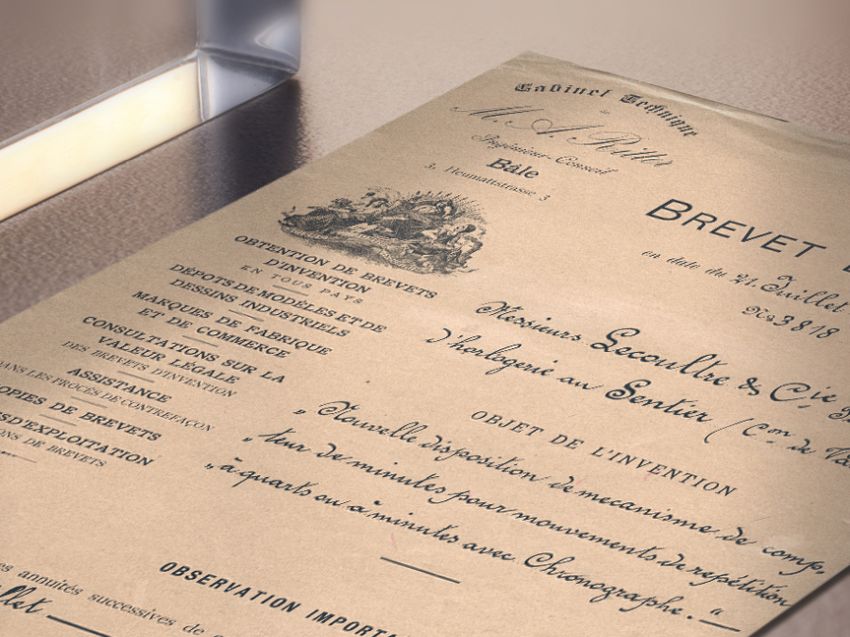 Cabinet Technique
de
M. A. Rittet
Ingénieur-Conseil
Bâle
3, Heumattstrasse 3
OBTENTION DE BREVETS
D'INVENTION
EN TOUS PAYS
DÉPOTS DE MODÈLES ET DE
DESSINS INDUSTRIELS
MARQUES DE FABRIQUE
ET DE COMMERCE
CONSULTATIONS SUR LA
VALEUR LÉGALE
DES BREVETS D'INVENTION
ASSISTANCE
DANS LES PROCÈS DE CONTREFAÇON
OPIES DE BREVETS
D'EXPLOITATION
ONS DE BREVETS
BREVET
en date du 21. Juillet
No 3818
Messieurs Lecoultre & Cie
d'horlogerie au Sentier (Con de Va
OBJET DE L'INVENTION
„ Nouvelle disposition de mecanisme de comp,
„ teur de minutes pour mouvements de repétition
„ à quarts ou à minutes avec Chronographe. — "
OBSERVATION IMPORTA
es annuités successives de
llet